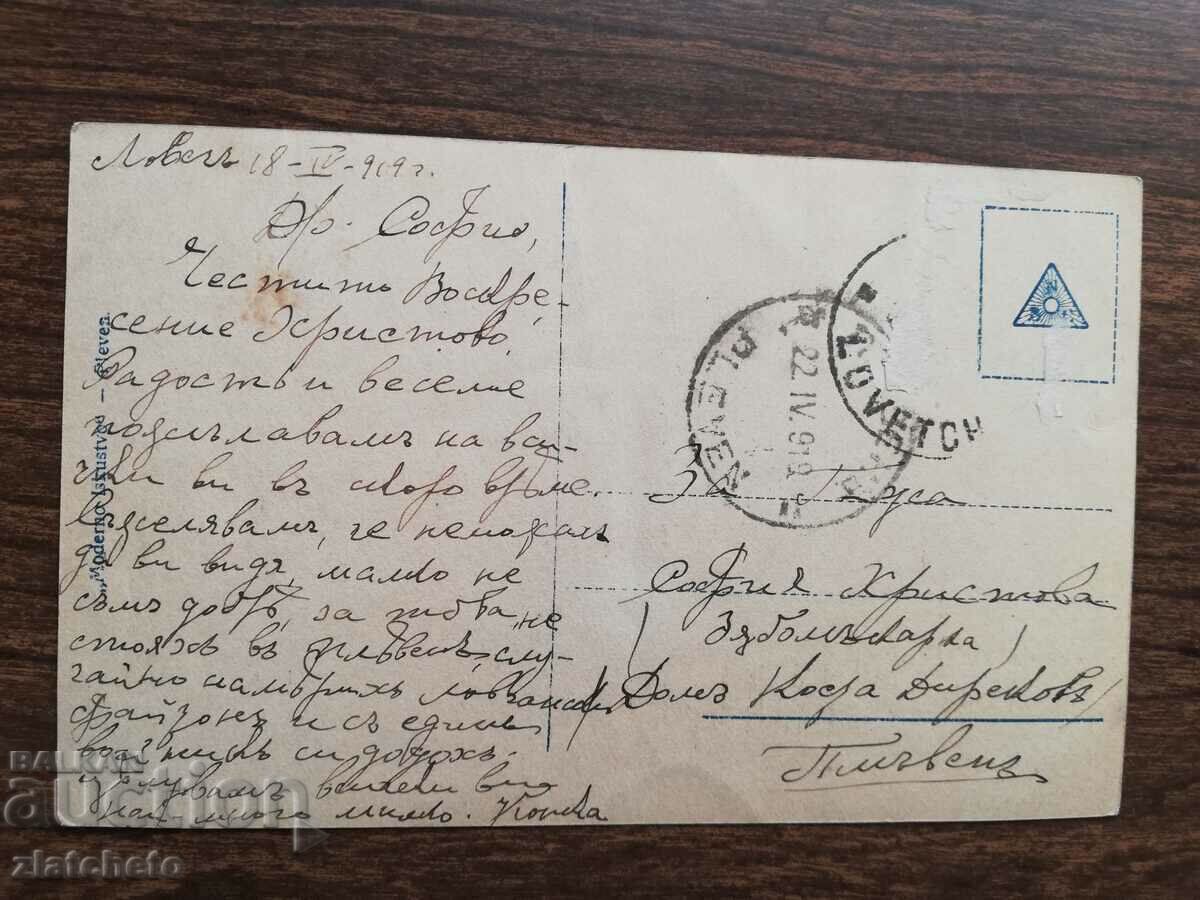 Ловечъ 18-IV-919 г.
Др. София,
Честито Воскре-
сение Христово,
Радость и веселие
подсълавамъ на вси-
чки ви въ скоро време.
съжелявамъ, че неможах
да ви видя, малко не
съмъ добрѣ, за това не
стояхъ въ Плѣвенъ, слу-
чайно намѣрихъ ловчански
файтонъ и съ единъ
си дойдохъ.
всички ви
най много мило.Конка
"Moderno Iskustvo" – Pleven
PLEVEN
22.IV.919
LOVETCH
За Г-ца
София Христова
(Зѫболѣкарка)
(Домъ Коса Дирековъ)
Плѣвенъ
BALKAN
auction
zlatcheto